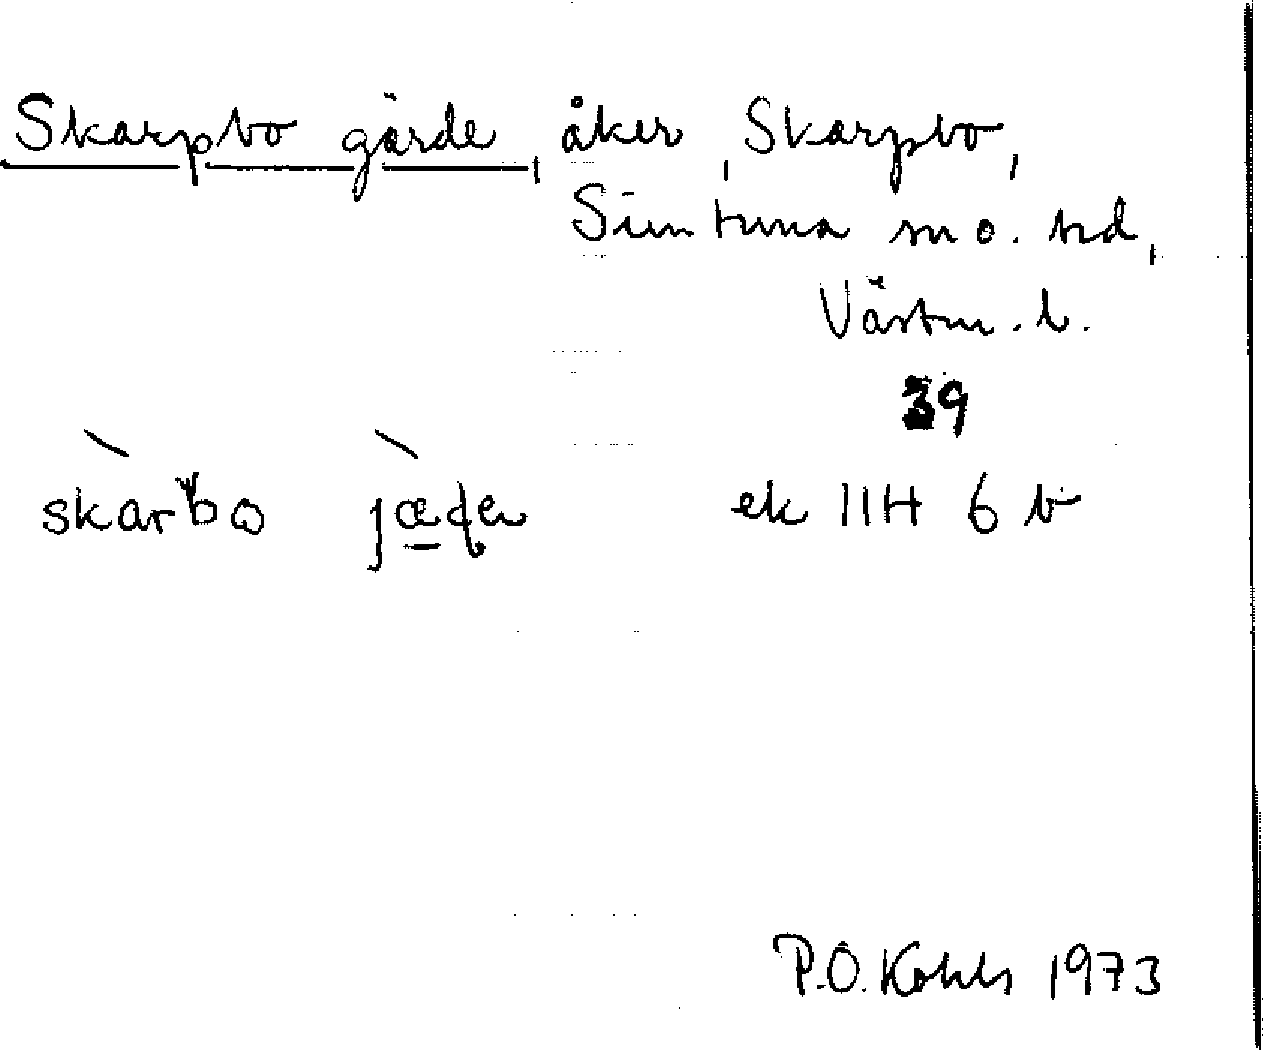 Skarpbo gärde, åker, Skarpbo,
Simtuna sn o. hd,
Västm. l.
39
skàrbo jæ̀den ek 11H 6 b
P.O. Kohls 1973